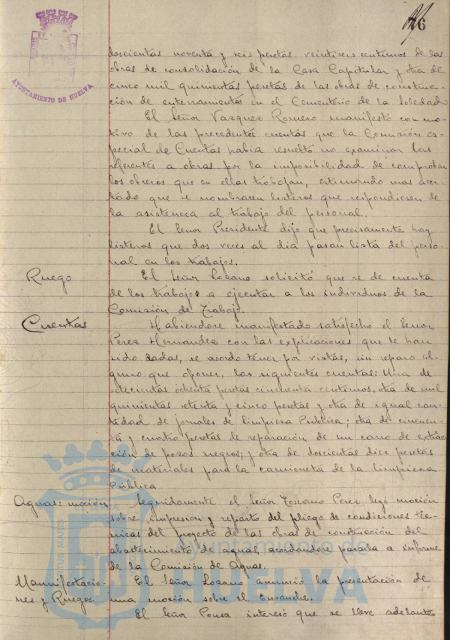 26
AYUNTAMIENTO DE HUELVA
doscientas noventa y seis pesetas, veintiseis centimos de las
obras de consolidación de la Casa Capitular y otra de
cinco mil quinientas pesetas de las obras de construc-
ción de enterramientos en el Cementerio de la Soledad.
El Señor Vazquez Romero manifestó con mo-
tivo de las precedentes cuentas que la Comisión es-
pecial de Cuentas había resuelto no examinar las
referentes a obras por la imposibilidad de comprobar
los obreros que en ellas trabajan, estimando mas acer-
tado que se nombrasen listeros que respondiesen de
la asistencia al trabajo del personal.
El Señor Presidente dijo que precisamente hay
listeros que dos veces al día pasan lista del perso-
nal en los trabajos.
Ruego
El Señor Lozano solicitó que se de cuenta
de los trabajos a ejecutar a los individuos de la
Comisión de Trabajo.
Cuentas
Habiendose manifestado satisfecho el Señor
Perez Hernandez con las explicaciones que le han
sido dadas, se acordó tener por vistas, sin reparo al-
guno que oponer, las siguientes cuentas: Una de
setecientas ochenta pesetas cincuenta centimos, otra de mil
quinientas setenta y cinco pesetas y otra de igual can-
tidad de jornales de limpieza Pública; otra de cincuen-
ta y cuatro pesetas de reparación de un carro de extrac-
ción de pozos negros; y otra de doscientas diez pesetas
de materiales para la camioneta de la limpieza
Pública
Aguas: moción
Seguidamente el Señor Toscano Perez leyó moción
sobre impresión y reparto del pliego de condiciones tec-
nicas del proyecto de las obras de construcción del
abastecimiento de aguas, acordandose pasarla a informe
de la Comisión de Aguas.
Manifestacio-
nes y Ruegos
El Señor Lozano anunció la presentación de
una moción sobre el Ensanche.
El Señor Ponce interesó que se lleve adelante
HUELVA